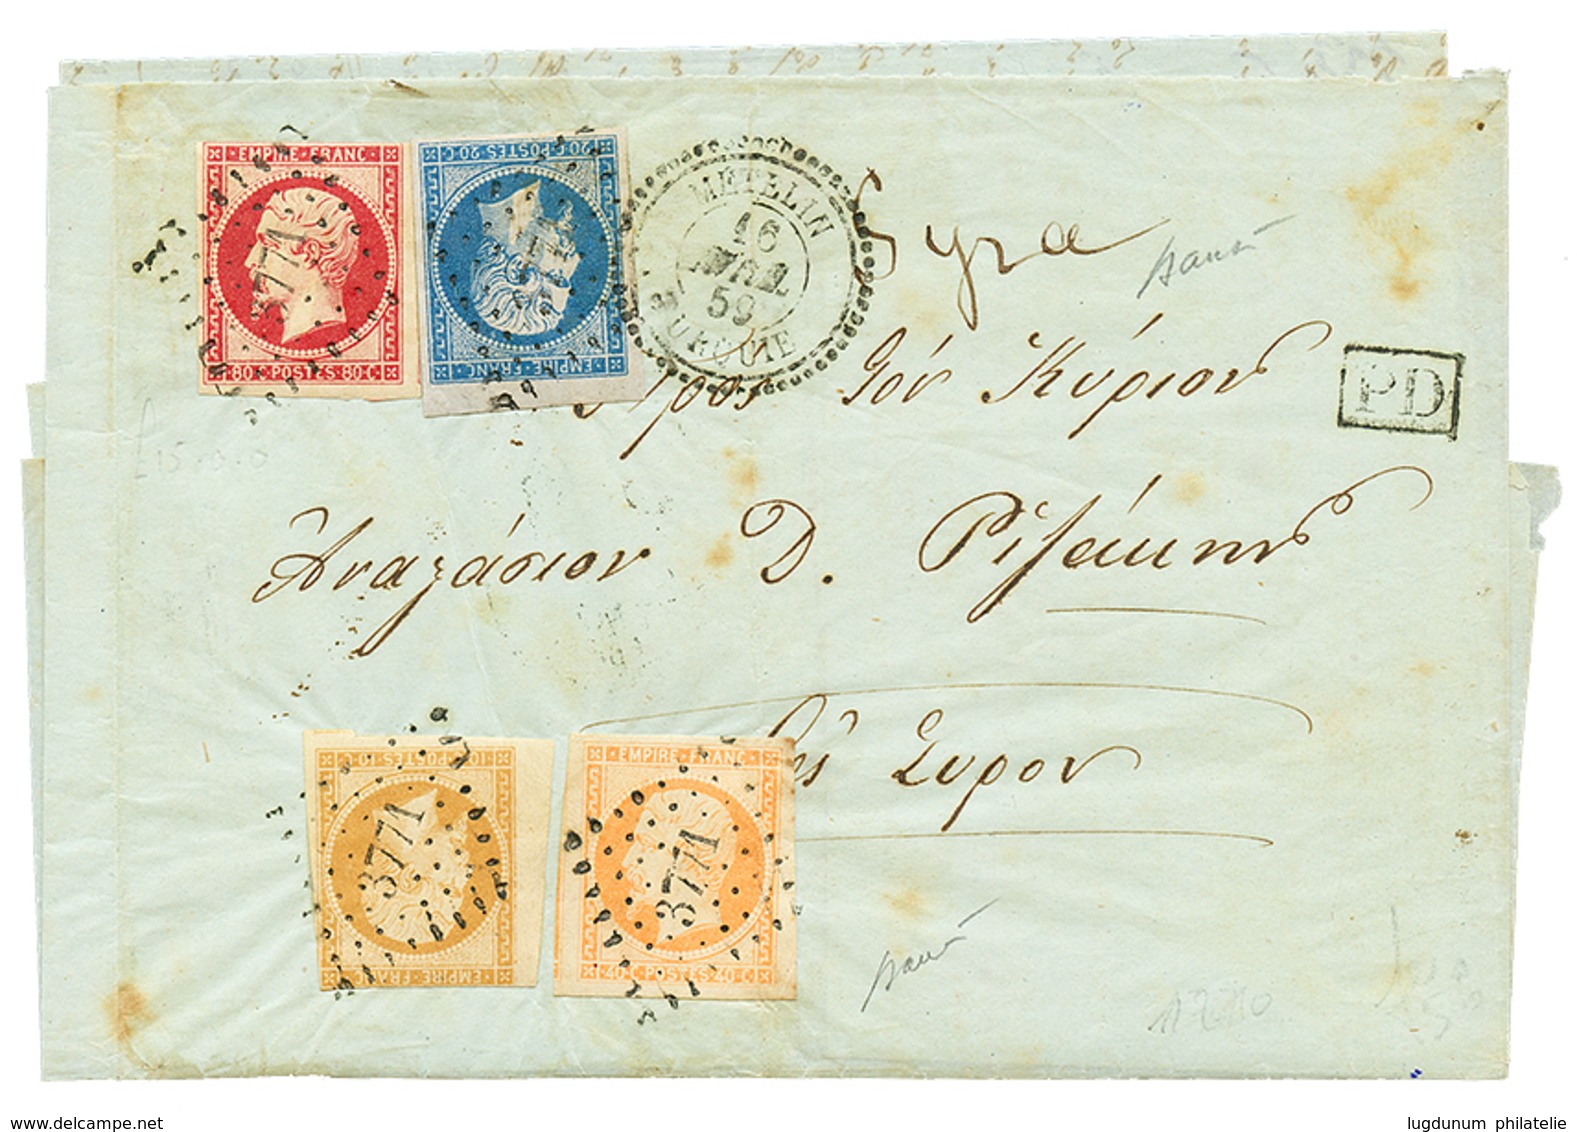 EMPIRE FRANC
80 C POSTES 80 C
3771
20 C POSTES 20 C
EMPIRE FRANC
METELIN
16
59
TURQUIE
Syra
PD
Προς Τόν Κύριον
Αναστάσιον Δ. Ριζάκην
Σύρον
10 C POSTES 10 C
3771
EMPIRE FRANC
EMPIRE FRANC
3771
40 C POSTES 40 C
delcampe.net
lugdunum philatelie